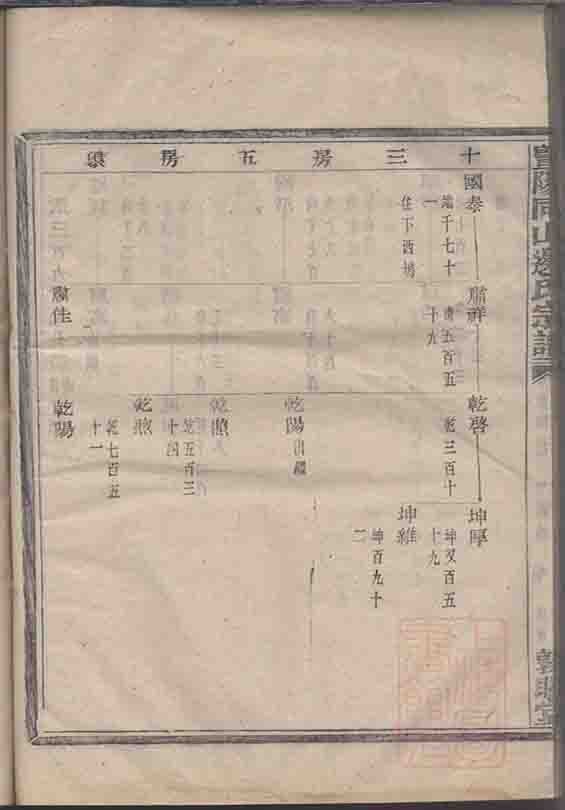 暨陽同山邊氏宗譜
十三房五房
國泰
端千七十
一
住下西塢
肅祥
貴五百五
十九
乾啓
乾三百十
坤厚
坤雙百五
十九
坤維
坤百九十
二
乾陽出繼
乾照
乾煦
乾五百三
十四
肅佳
乾陽
乾七百五
十一